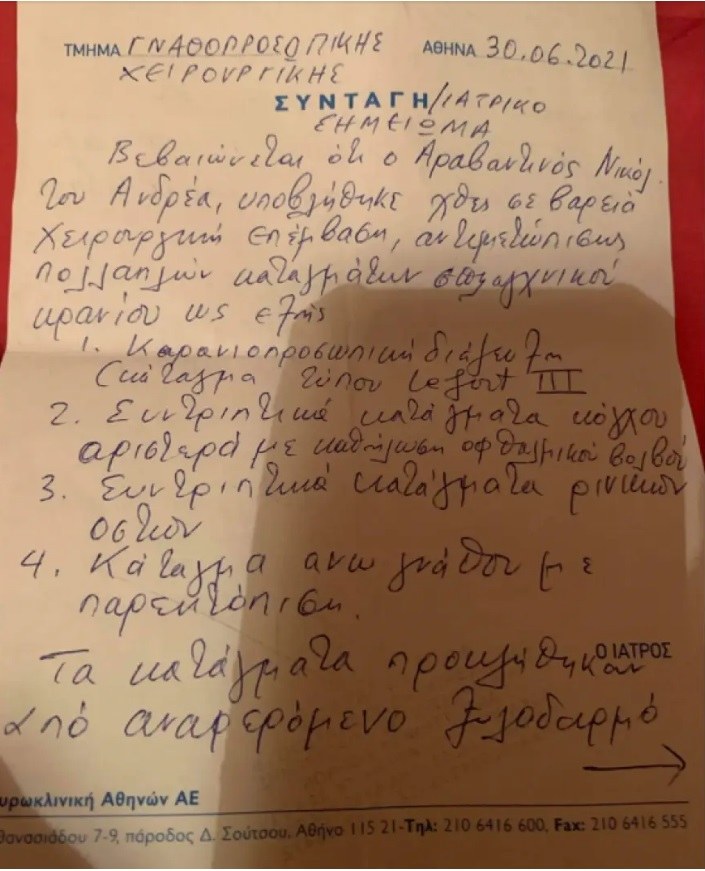 ΤΜΗΜΑ ΓΝΑΘΟΠΡΟΣΩΠΙΚΗΣ ΑΘΗΝΑ 30.06.2021
ΧΕΙΡΟΥΡΓΙΚΗΣ
ΣΥΝΤΑΓΗ/ΙΑΤΡΙΚΟ
ΣΗΜΕΙΩΜΑ
Βεβαιώνεται ότι ο Αραβαντινός Νικόλ.
του Ανδρέα, υποβλήθηκε χθες σε βαρειά
χειρουργική επέμβαση, αντιμετώπισης
πολλαπλών καταγμάτων σπλαγχνικού
κρανίου ως εξής
1. Κρανιοπροσωπική διάζευξη
(κάταγμα τύπου Lefort III
2. Συντριπτικά κατάγματα κόγχου
αριστερά με καθήλωση οφθαλμικού βολβού
3. Συντριπτικά κατάγματα ρινικών
οστών
4. Κάταγμα ανω γνάθου με
παρεκτόπιση.
Ο ΙΑΤΡΟΣ
Τα κατάγματα προκλήθηκαν
από αναφερόμενο ξυλοδαρμό
υρωκλινική Αθηνών ΑΕ
θανασιάδου 7-9, πάροδος Δ. Σούτσου, Αθήνα 115 21-Τηλ: 210 6416 600, Fax: 210 6416 555